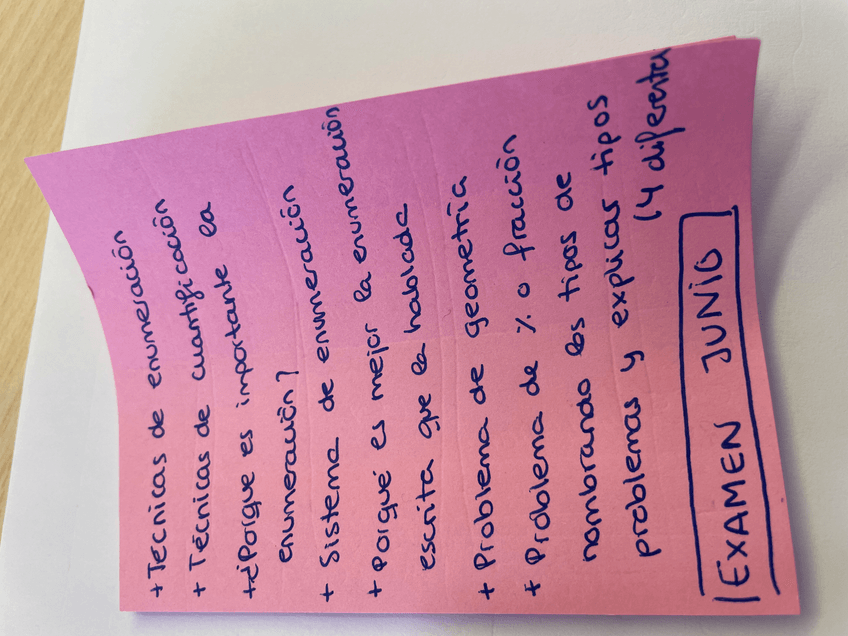 + Tecnicas de enumeración
+ Técnicas de cuantificación
+ ¿Porque es importante la
enumeración?
+ Sistema de enumeración
+ Porqué es mejor la enumeración
escrita que la hablada
+ Problema de geometría
+ Problema de % o fracción
nombrando los tipos de
problemas y explicar tipos
(4 diferente
EXAMEN JUNIO